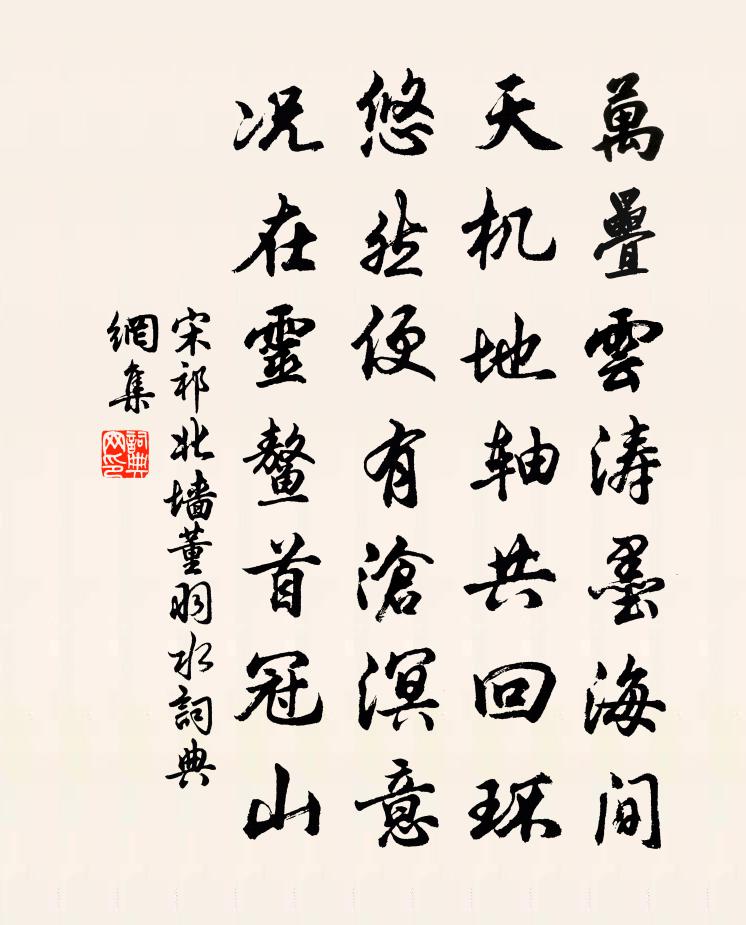 萬疊雲涛墨海间
天机地轴共回环
悠然便有滄溟意
况在靈鳌首冠山
宋祁北墙董羽水詞典
網集
詞典
网印